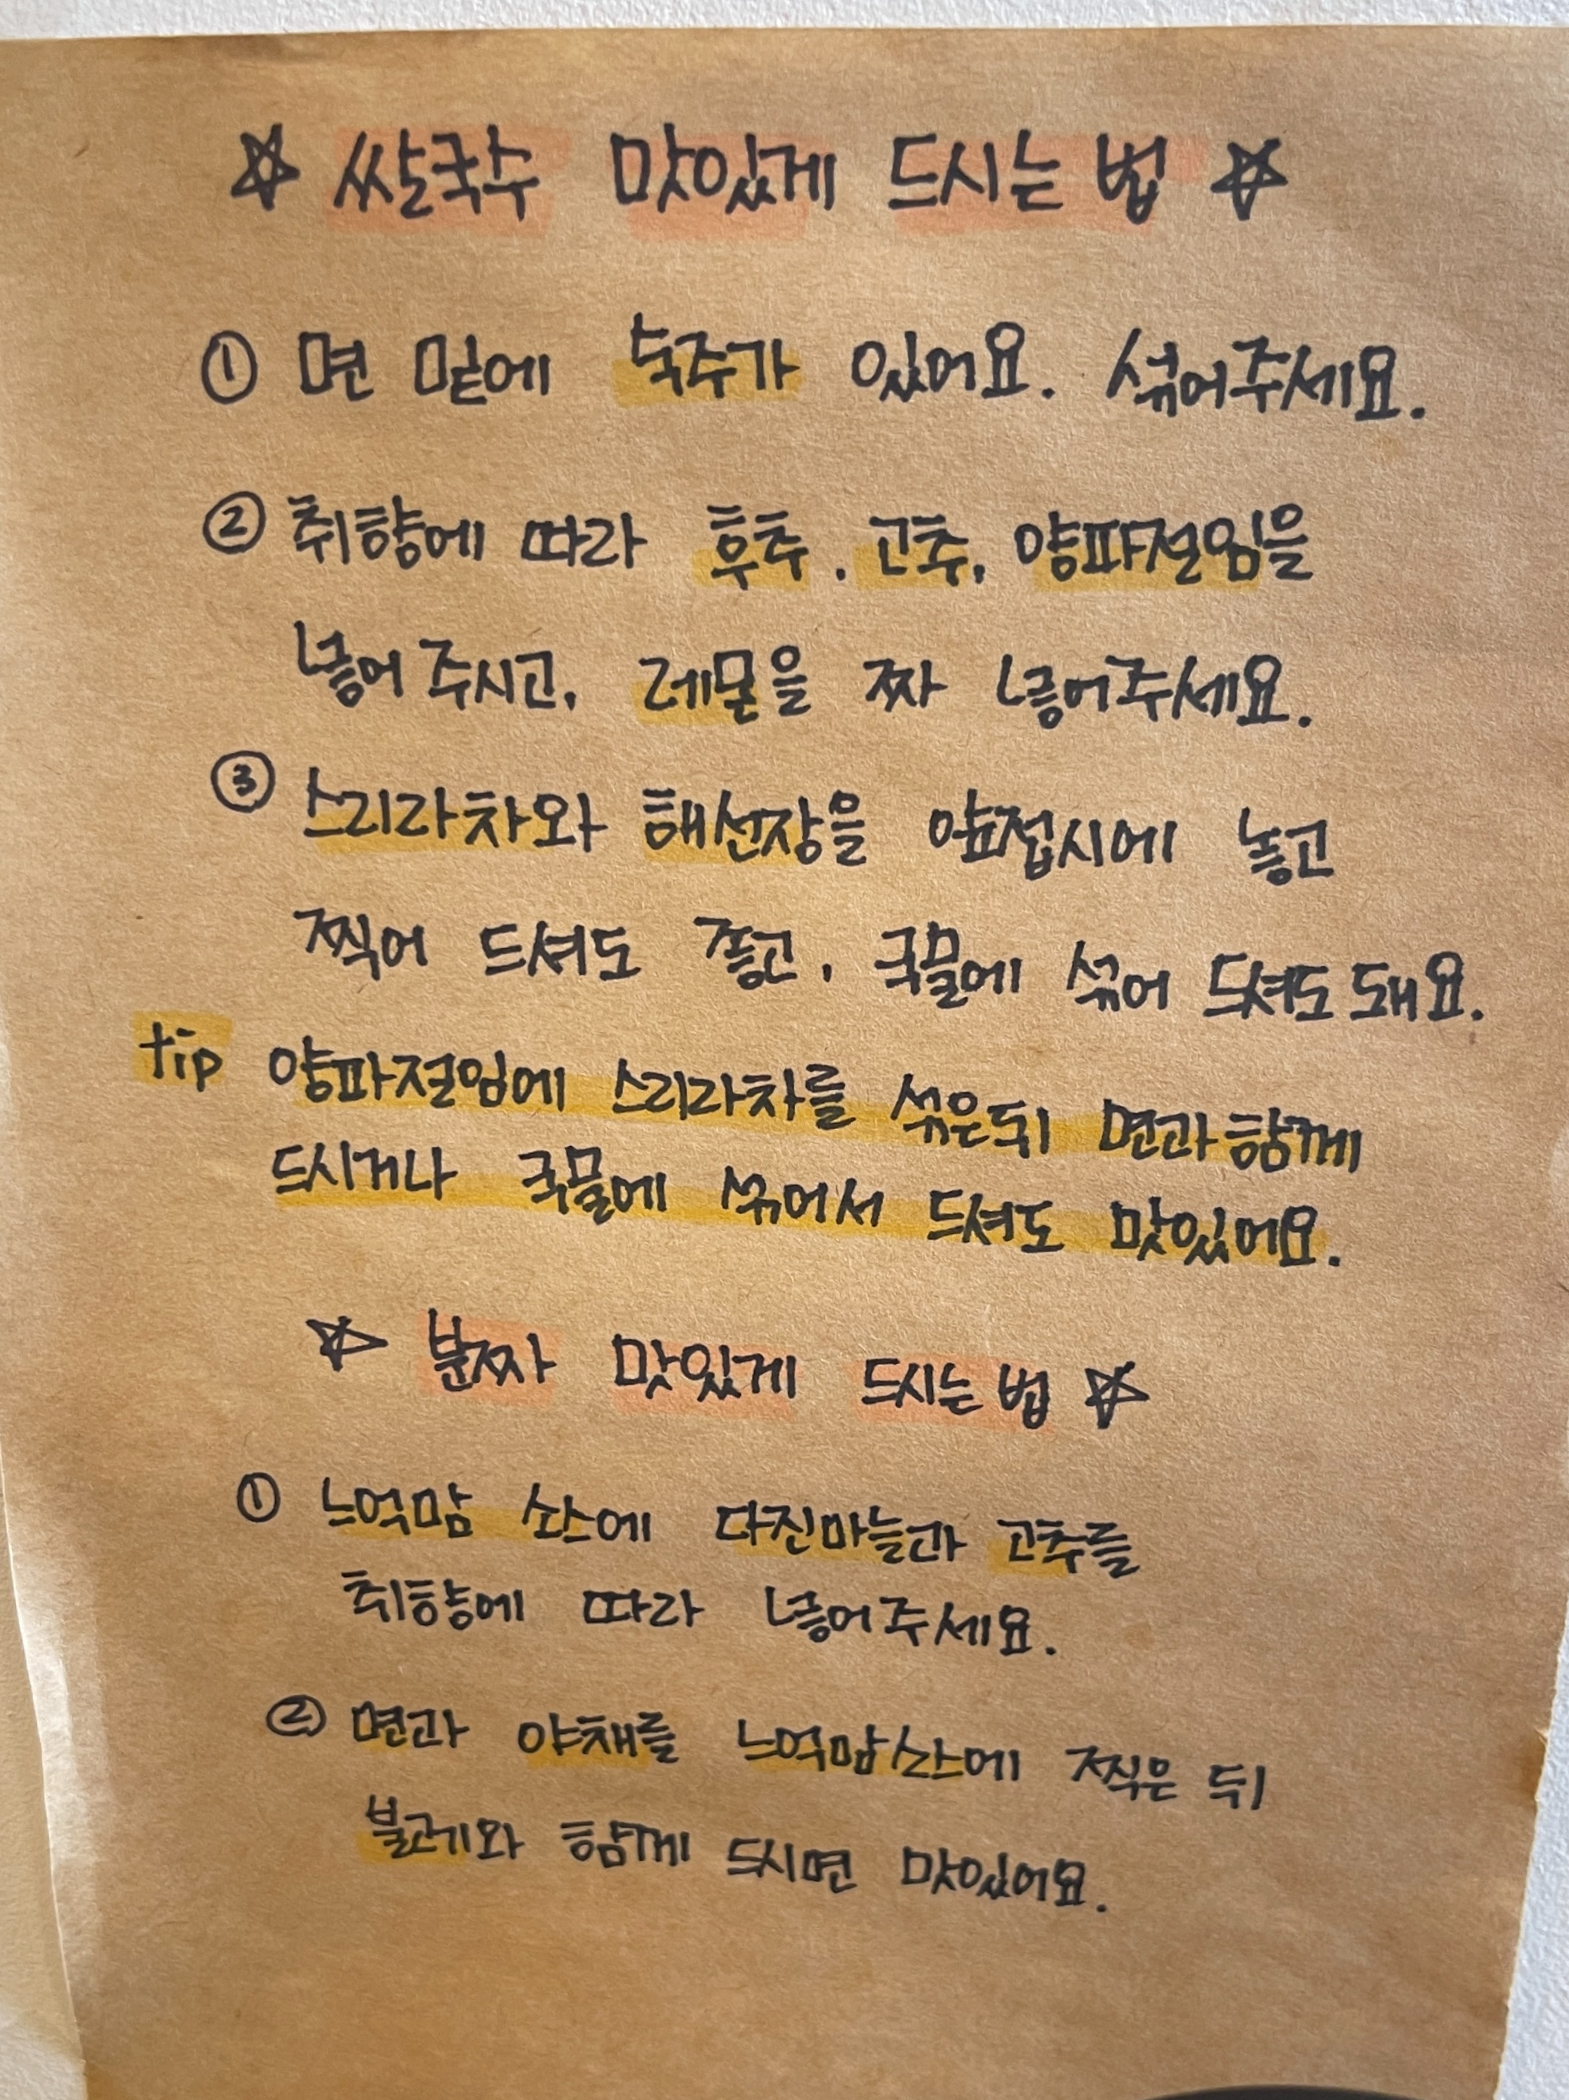 ☆ 쌀국수 맛있게 드시는 법 ☆
① 면 밑에 숙주가 있어요. 섞어주세요.
② 취향에 따라 후추, 고추, 양파절임을
넣어 주시고, 레몬을 짜 넣어주세요.
③ 스리라차와 해선장을 앞접시에 놓고
찍어 드셔도 좋고, 국물에 섞어 드셔도 돼요.
tip 양파절임에 스리라차를 섞은뒤 면과 함께
드시거나 국물에 섞어서 드셔도 맛있어요.
☆ 분짜 맛있게 드시는 법 ☆
① 느억맘 소스에 다진마늘과 고추를
취향에 따라 넣어주세요.
② 면과 야채를 느억맘소스에 찍은 뒤
불고기와 함께 드시면 맛있어요.